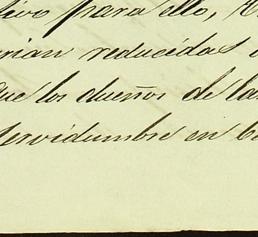 tivo para ello,
rian reducidas
que los dueños de la
servidumbre en